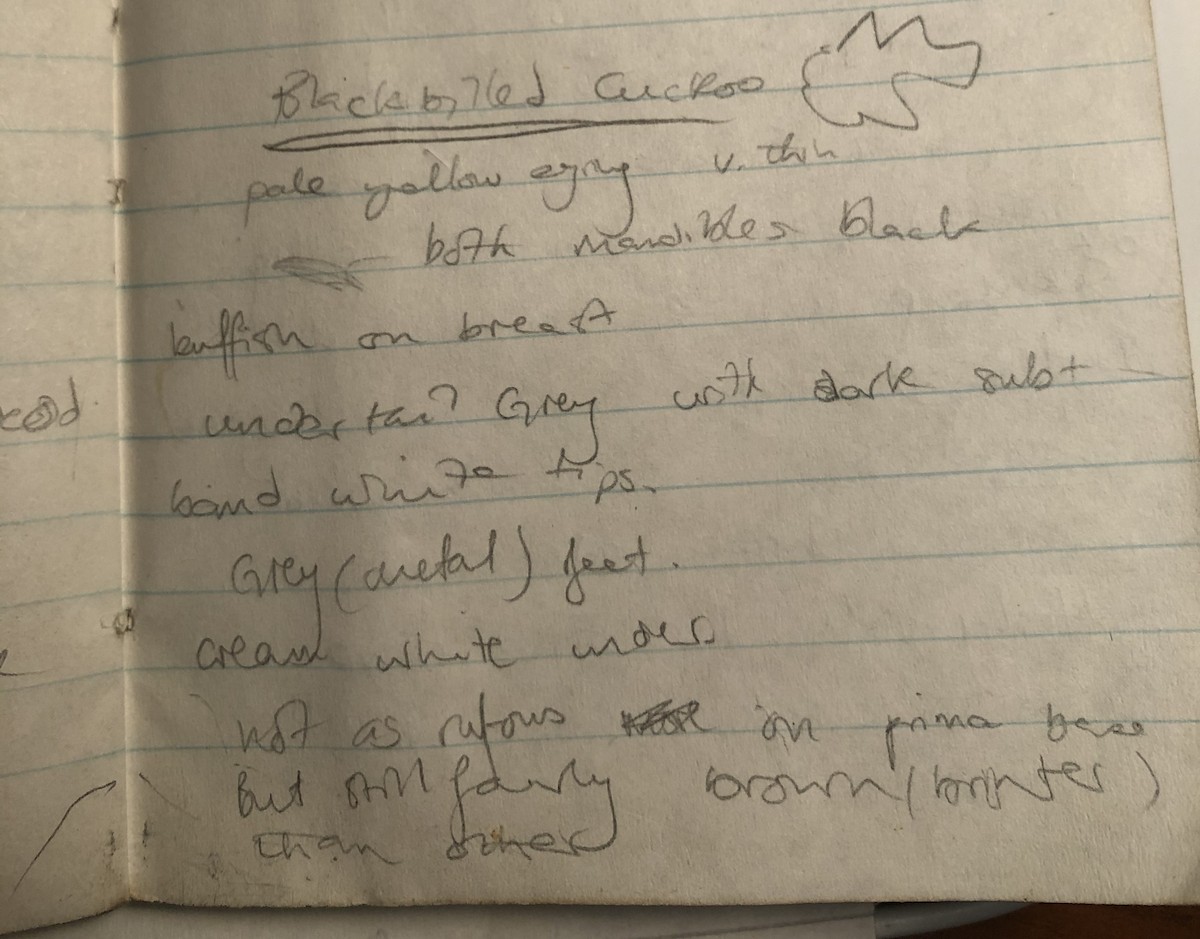 Black billed Cuckoo
pale yellow eyring v. thin
both mandibles black
buffish on breast
under tail Grey with dark subt
band white tips.
Grey (metal) feet.
cream white under
not as rufous on prima base
But still fairly brown (brighter)
than other